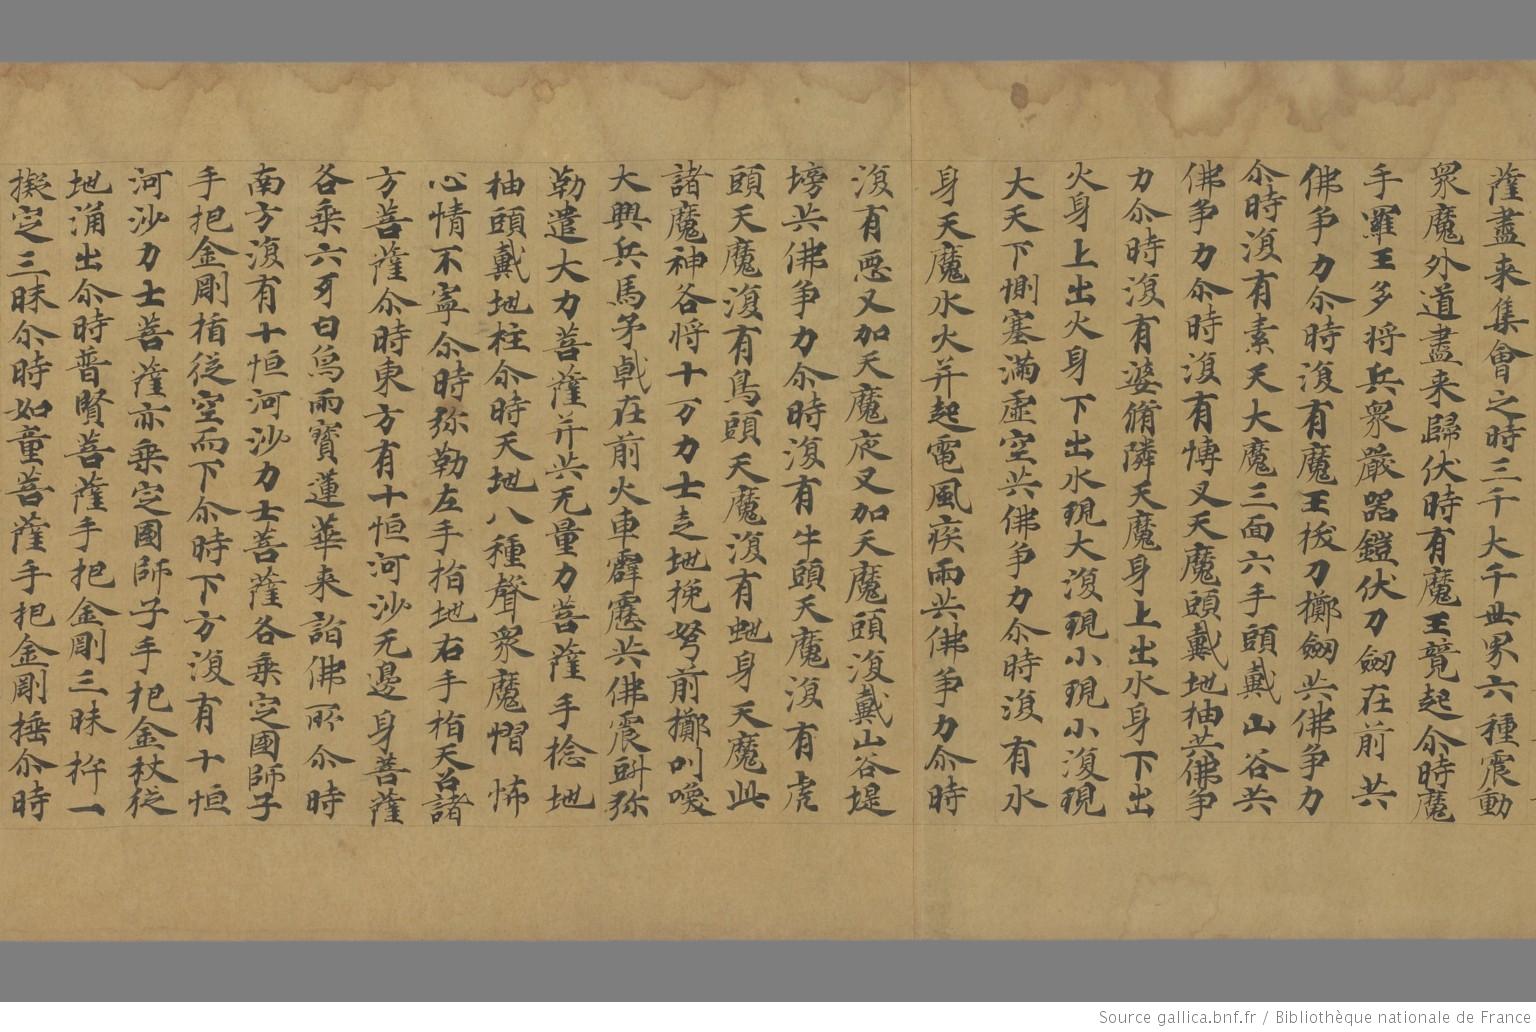 薩盡来集會之時三千大千世界六種震動
衆魔外道盡来歸伏時有魔王竟起尒時魔
手羅王多将兵衆嚴器鎧伏刀劒在前共
佛争力尒時復有魔王拔刀擲劒共佛争力
尒時復有素天大魔三面六手頭戴山谷共
佛争力尒時復有愽叉天魔頭戴地柚共佛争
力尒時復有婆脩隣天魔身上出水身下出
火身上出火身下出水現大復現小現小復現
大天下惻塞滿虚空共佛争力尒時復有水
身天魔水火并起電風疾雨共佛争力尒時
復有惡叉加天魔夜叉加天魔頭復戴山谷堤
塝共佛争力尒時復有牛頭天魔復有虎
頭天魔復有鳥頭天魔復有虵身天魔此
諸魔神各将十万力士走地挽弩前擲叫喚
大興兵馬矛戟在前火車霹靂共佛震㪷弥
勒遣大力菩薩并共无量力菩薩手捻地
柚頭戴地柱尒時天地八種聲衆魔慴怖
心情不寧尒時弥勒左手指地右手指天召諸
方菩薩尒時東方有十恒河沙无邊身菩薩
各乘六牙白爲雨寳蓮華来詣佛所尒時
南方復有十恒河沙力士菩薩各乘定國師子
手把金剛楯従空而下尒時下方復有十恒
河沙力士菩薩亦乘定國師子手把金杖従
地涌出尒時普賢菩薩手把金剛三昧杵一
擬定三昧尒時如童菩薩手把金剛捶尒時
Source gallica.bnf.fr / Bibliothèque nationale de France